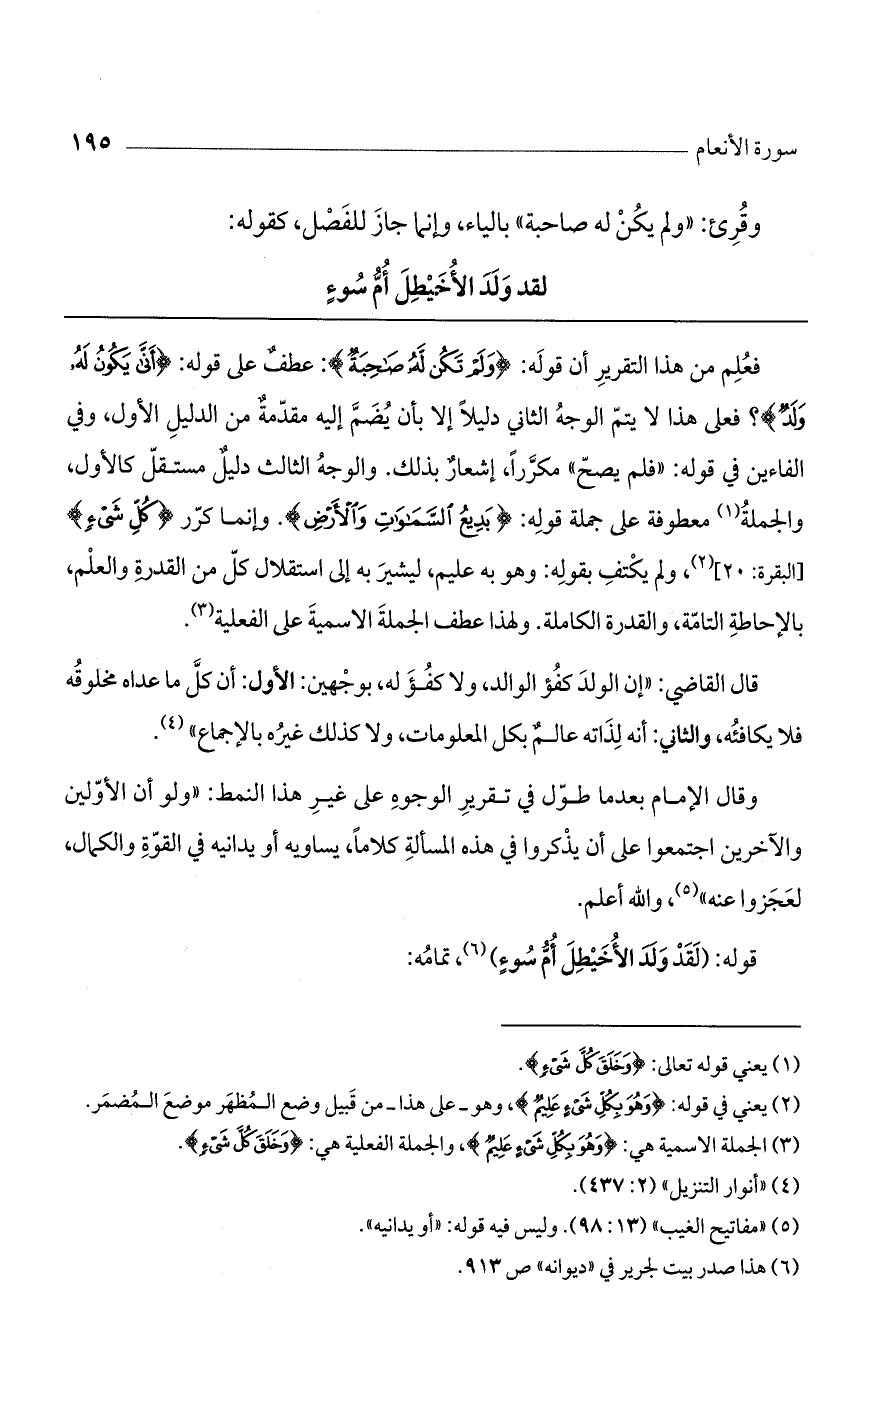 سورة الأنعام ١٩٥
وقُرِئ: «ولم يكُنْ له صاحبة» بالياء، وإنما جازَ للفَصْل، كقوله:
لقد وَلَدَ الأُخَيْطِلَ أُمُّ سُوءٍ
فعُلِم من هذا التقريرِ أن قولَه: ﴿وَلَمْ تَكُن لَّهُ صَاحِبَةٌ﴾: عطفٌ على قوله: ﴿أَنَّى يَكُونُ لَهُ
وَلَدٌ﴾؟ فعلى هذا لا يتمّ الوجهُ الثاني دليلاً إلا بأن يُضَمَّ إليه مقدّمةٌ من الدليلِ الأول، وفي
الفاءين في قوله: «فلم يصحّ» مكرَّراً، إشعارٌ بذلك. والوجهُ الثالث دليلٌ مستقلّ كالأول،
والجملةُ(١) معطوفة على جملة قولِه: ﴿بَدِيعُ السَّمَاوَاتِ وَالْأَرْضِ﴾. وإنما كرّر ﴿كُلِّ شَيْءٍ﴾
[البقرة: ٢٠](٢)، ولم يكْتفِ بقولِه: وهو به عليم، ليشيرَ به إلى استقلال كلّ من القدرةِ والعلْم،
بالإحاطةِ التامّة، والقدرة الكاملة. ولهذا عطف الجملةَ الاسميةَ على الفعلية(٣).
قال القاضي: «إن الولدَ كفُؤ الوالد، ولا كفُؤَ له، بوجْهين: الأول: أن كلَّ ما عداه مخلوقُه
فلا يكافئُه، والثاني: أنه لِذَاته عالمٌ بكل المعلومات، ولا كذلك غيرُه بالإجماع» (٤).
وقال الإمام بعدما طوّل في تقريرِ الوجوهِ على غيرِ هذا النمط: «ولو أن الأوّلين
والآخرين اجتمعوا على أن يذْكروا في هذه المسألةِ كلاماً، يساويه أو يدانيه في القوّةِ والكمال،
لعَجَزوا عنه»(٥)، والله أعلم.
قوله: (لَقَدْ وَلَدَ الأُخَيْطِلَ أُمُّ سُوءٍ)(٦)، تمامُه:
(١) يعني قوله تعالى: ﴿وَخَلَقَ كُلَّ شَيْءٍ﴾.
(٢) يعني في قوله: ﴿وَهُوَ بِكُلِّ شَيْءٍ عَلِيمٌ﴾، وهو ـ على هذا ـ من قَبيل وضع المُظهَر موضعَ المُضمَر.
(٣) الجملة الاسمية هي: ﴿وَهُوَ بِكُلِّ شَيْءٍ عَلِيمٌ﴾، والجملة الفعلية هي: ﴿وَخَلَقَ كُلَّ شَيْءٍ﴾.
(٤) «أنوار التنزيل» (٢: ٤٣٧).
(٥) «مفاتيح الغيب» (١٣: ٩٨). وليس فيه قوله: «أو يدانيه».
(٦) هذا صدر بيت لجرير في «ديوانه» ص ٩١٣.